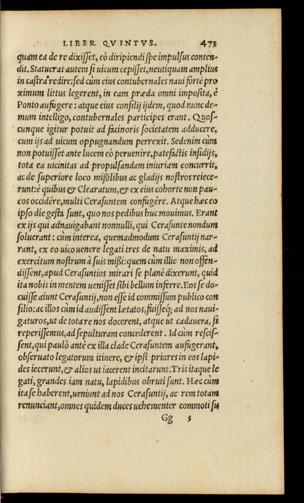 LIBER QVINTVS. 473
quam ea de re dixisset, eò diripiendi spe impulsus conten-
dit. Statuerat autem si uicum cepisset, neutiquam amplius
in castra redire: sed cùm eius contubernales naui fortè pro
ximum littus legerent, in eam præda omni imposita, è
Ponto aufugere: atque eius consilij ijdem, quod nunc de-
mum intelligo, contubernales participes erant. Quos-
cunque igitur potuit ad facinoris societatem adducere,
cum ijs ad uicum oppugnandum perrexit. Sed enim cùm
non potuisset ante lucem eò peruenire, patefactis insidijs,
tota ea uicinitas ad propulsandam iniuriam concurrit,
ac de superiore loco missilibus ac gladijs nostros reiece-
runt: è quibus & Clearatum, & ex eius cohorte non pau-
cos occidêre, multi Cerasuntem confugêre. Atque hæc eo
ipso die gesta sunt, quo nos pedibus huc mouimus. Erant
ex ijs qui adnauigabant nonnulli, qui Cerasunte nondum
soluerant: cùm interea, quemadmodum Cerasuntij nar-
rant, ex eo uico uenere legati tres de natu maximis, ad
exercitum nostrum à suis missi: quem cùm illic non offen-
dissent, apud Cerasuntios mirari se planè dixerunt, quid
ita nobis in mentem uenisset sibi bellum inferre. Eos se do-
cuisse aiunt Cerasuntij, non esse id commissum publico con
silio: ac illos cùm id audissent lætatos, fuisseq́; ad nos naui-
gaturos, ut de tota re nos docerent, atque ut cadauera, si
reperissemus, ad sepulturam concederent. Id cùm resciſ-
sent, qui paulò antè ex illa clade Cerasuntem aufugerant,
obseruato legatorum itinere, & ipsi priores in eos lapi-
des iecerunt, & alios ut iacerent incitarunt. Tris itaque le
gati, grandes iam natu, lapidibus obruti sunt. Hæc cùm
ita se haberent, ueniunt ad nos Cerasuntij, ac rem totam
renunciant, omnes quidem duces uehementer commoti su
Gg 5